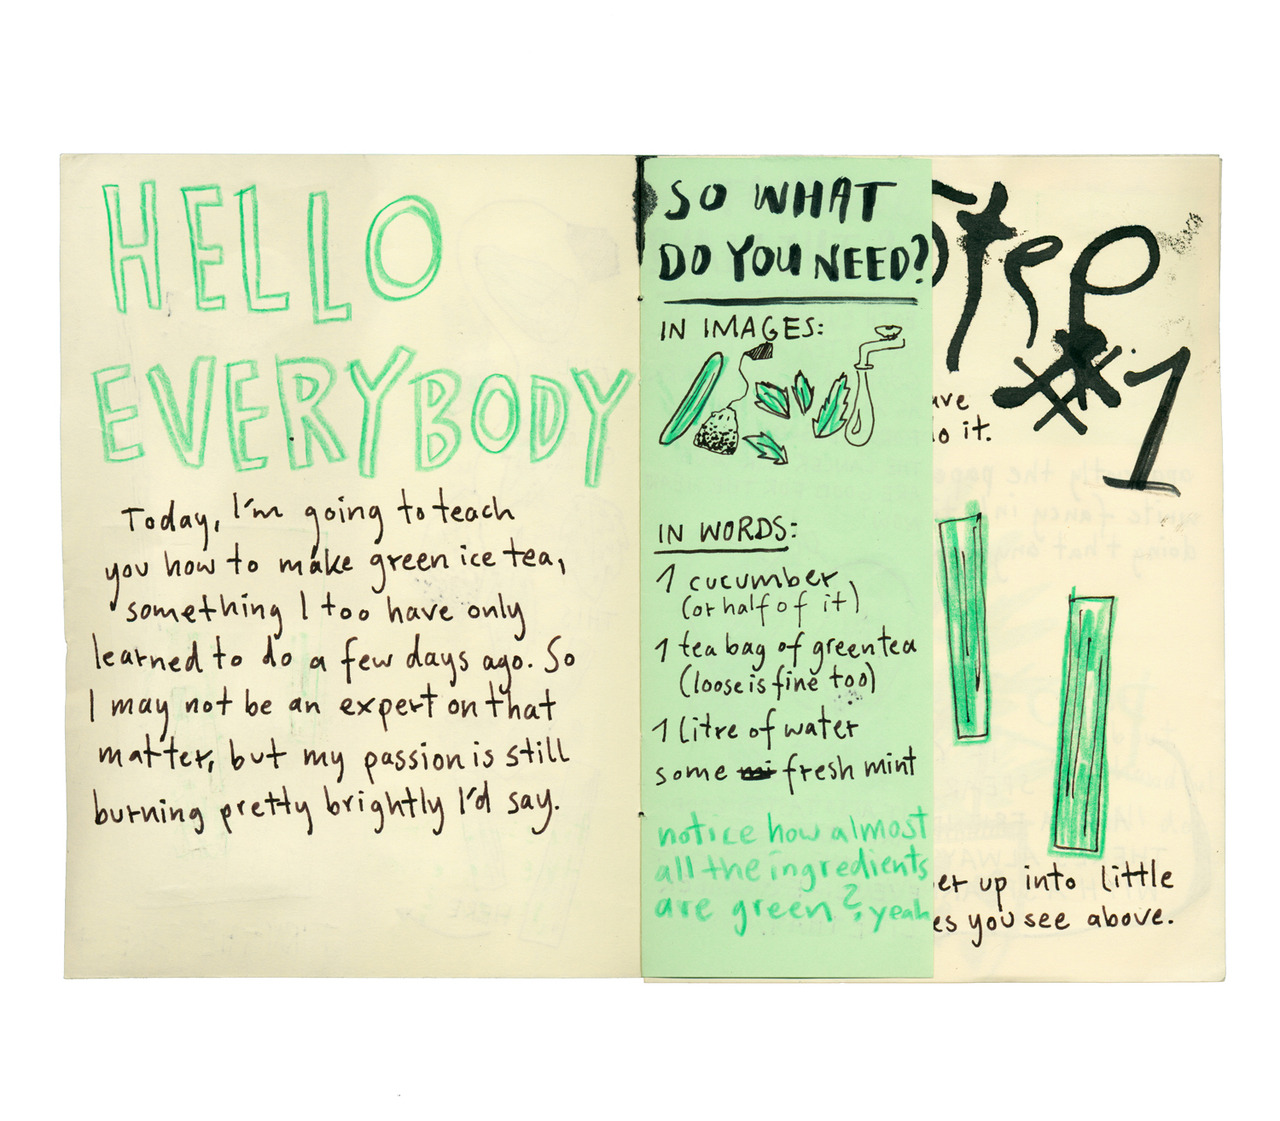 HELLO
EVERYBODY
Today, I'm going to teach
you how to make green ice tea,
something I too have only
learned to do a few days ago. So
I may not be an expert on that
matter, but my passion is still
burning pretty brightly I'd say.
SO WHAT
DO YOU NEED?
IN IMAGES:
IN WORDS:
1 cucumber
(or half of it)
1 tea bag of green tea
(loose is fine too)
1 litre of water
some mi fresh mint
notice how almost
all the ingredients
are green? yeah
Step
#1
it.
up into little
you see above.